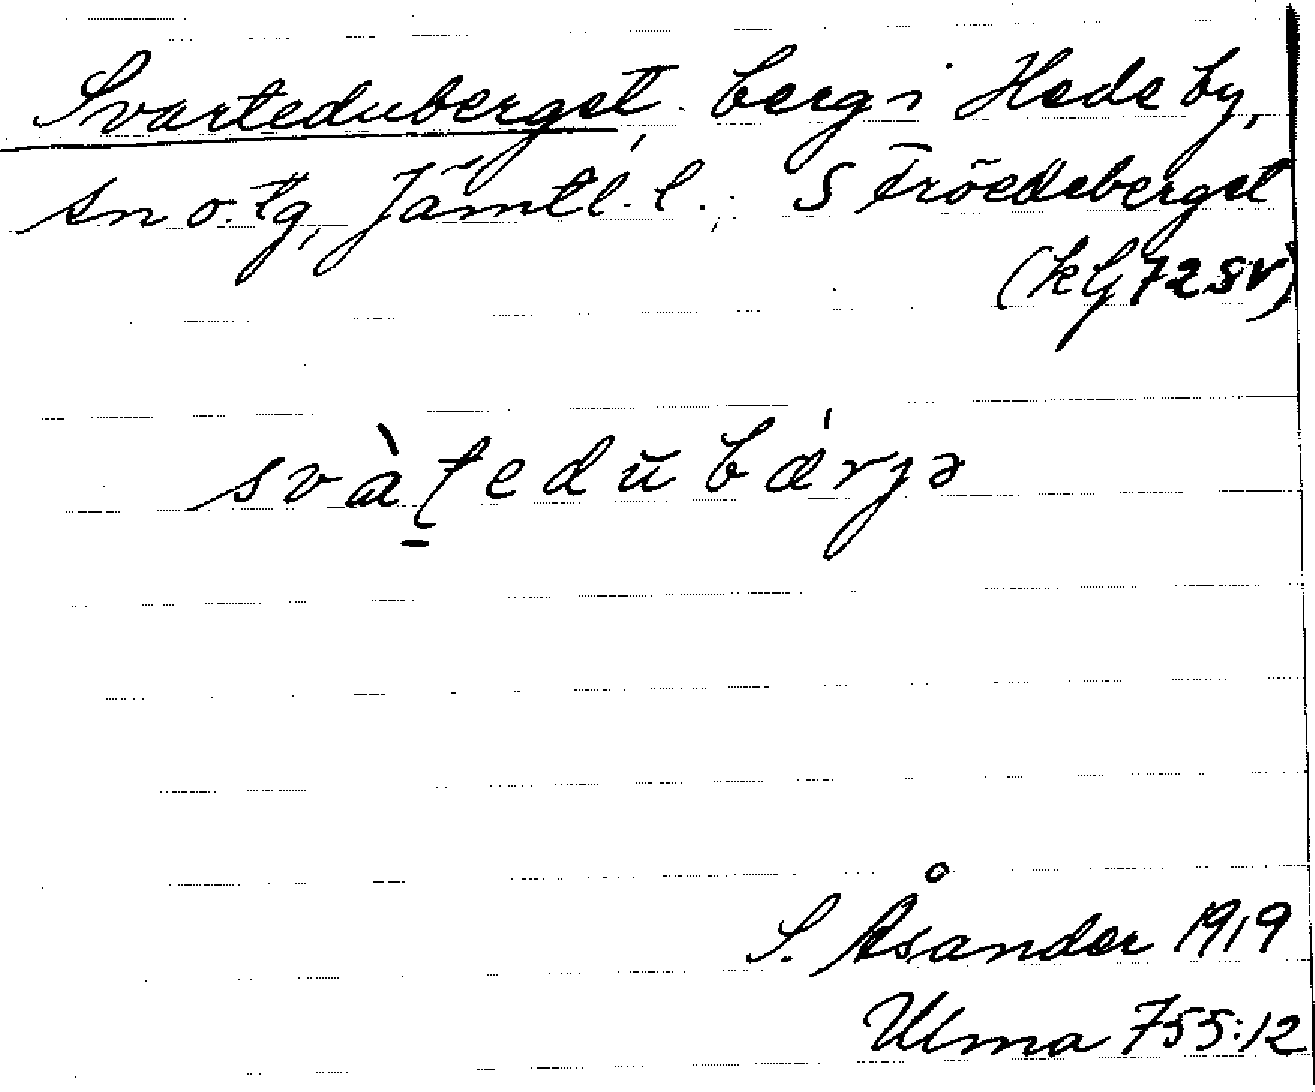 Svarteduberget, berg i Hede by,
sn o. tg, Jämtl. l.; S Tröedeberget
(kG 72 SV)
svàţedūbǽrjə
S. Åsander 1919
Ulma 755:12